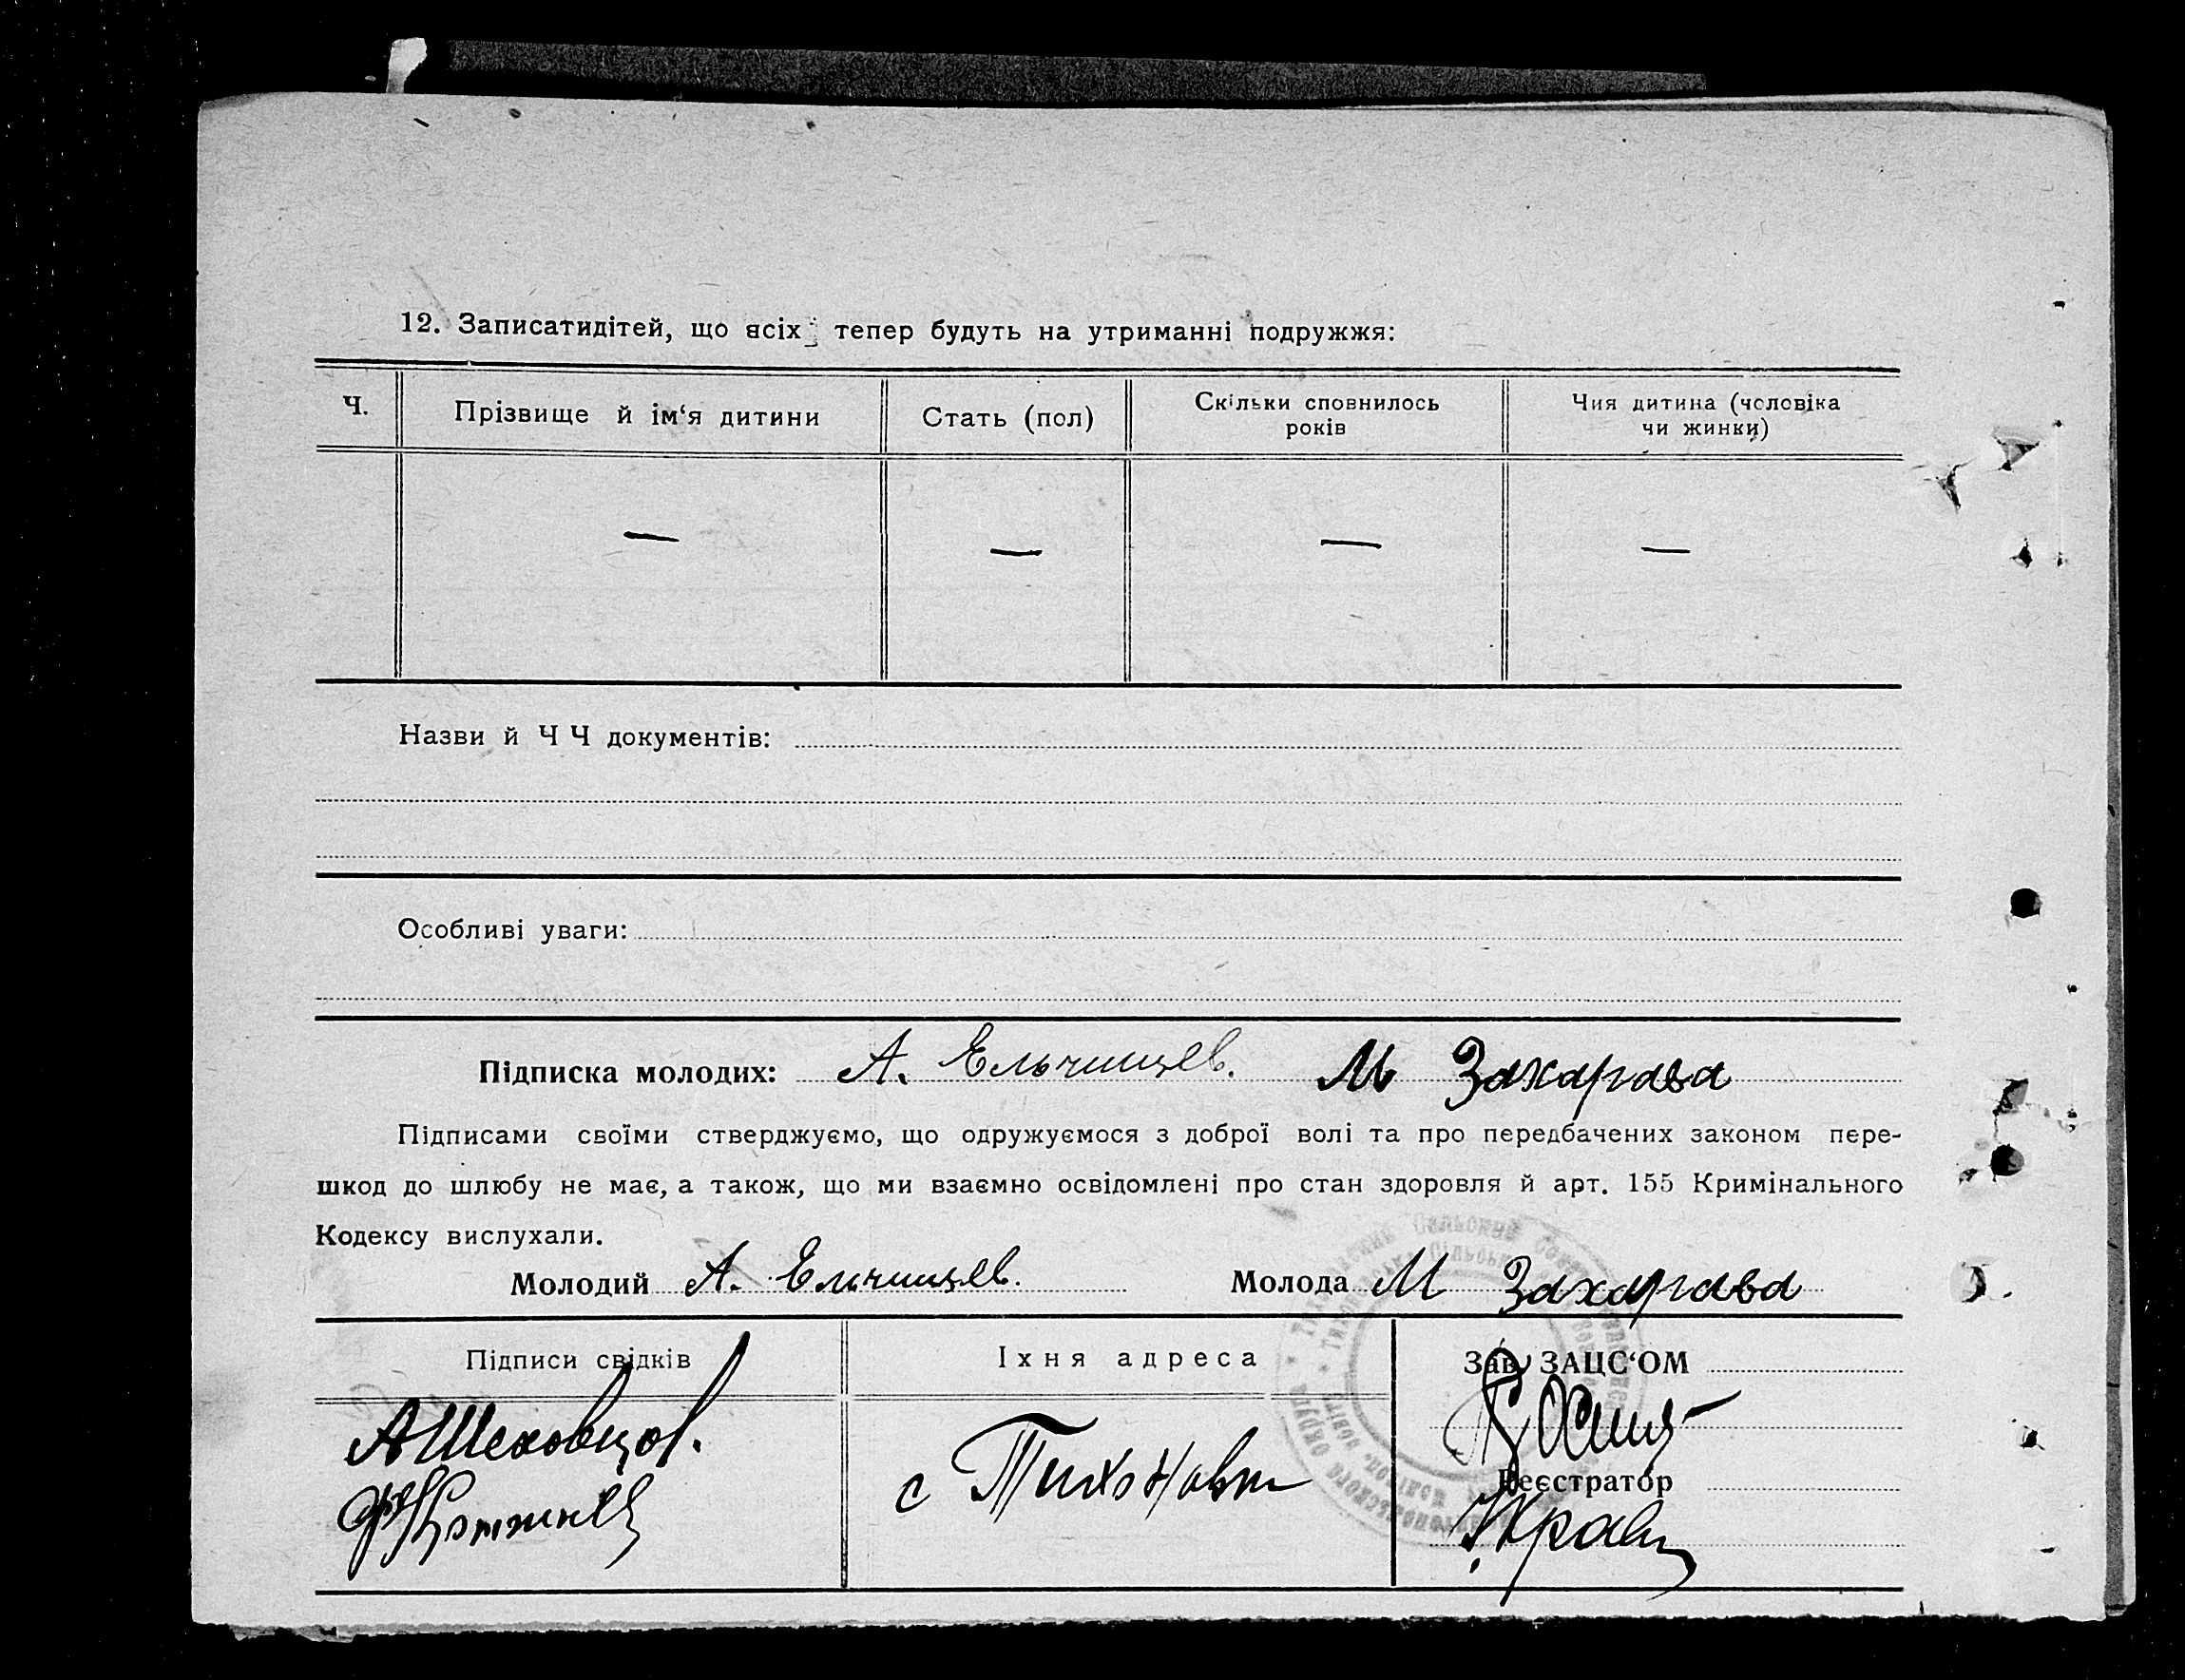 12. Записатидітей, що всіх тепер будуть на утриманні подружжя:
Ч.
Прізвище й ім‘я дитини
Стать (пол)
Скільки сповнилось
років
Чия дитина (чоловіка
чи жинки)
— — — —
Назви й Ч Ч документів:
Особливі уваги:
Підписка молодих: А. Ельчищев. М Захарава
Підписами своїми стверджуємо, що одружуємося з доброї волі та про передбачених законом пере-
шкод до шлюбу не має, а також, що ми взаємно освідомлені про стан здоровля й арт. 155 Кримінального
Кодексу вислухали.
Молодий А. Ельчищев. Молода М Захарава
Підписи свідків
Іхня адреса
Зав. ЗАЦС‘ОМ
АШеховцов.
с Тихоновки
Реєстратор